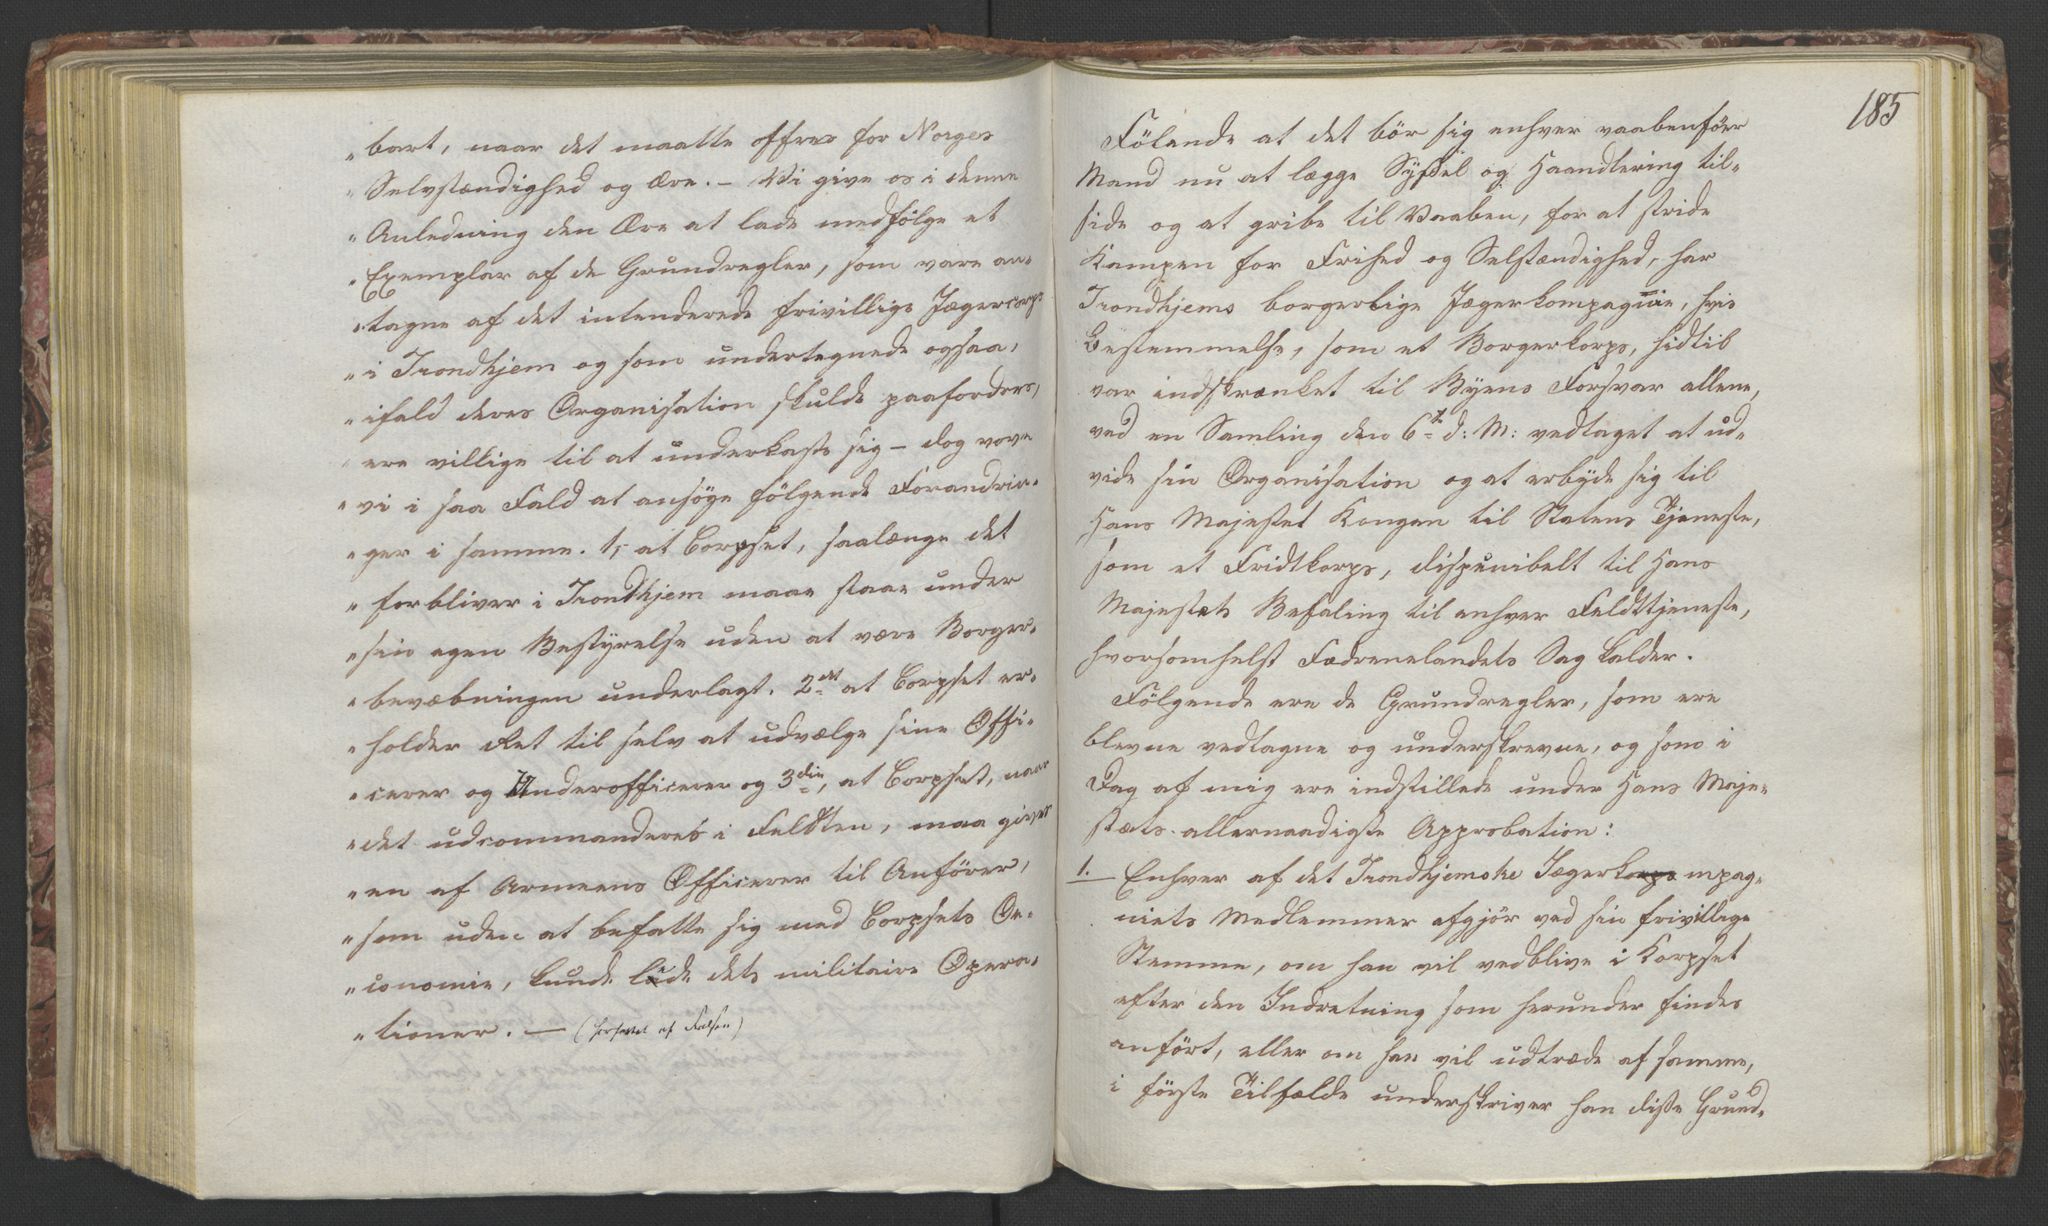 "bart, naar det maatte offres for Norges
"Selvstændighed og Ære. – Vi give os i denne
"Anledning den Ære at lade medfølge et
"Exemplar af de Grundregler, som vare an-
"tagne af det intenderede frivillige Jægercorps
"i Trondhjem og som undertegnede ogsaa,
"ifald deres Organisation skulde paafordres,
"ere villige til at underkaste sig – dog vove
"vi i saa Fald at ansøge følgende Forandrin-
"ger i samme. 1, at Corpset, saalænge det
"forbliver i Trondhjem maae staae under
"sin egen Bestyrelse uden at være Borger-
"bevæbningen underlagt. 2det at Corpset er-
"holder Ret til selv at udvælge sine Offi-
"cerer og Underofficerer og 3die, at Corpset, naar
"det udcommanderes i Feldten, maa gives
"en af Armeens Officerer til Anförer,
"som uden at befatte sig med Corpsets Oe-
"conomie, kunde lede dets militaire Opera-
"tioner. — (forfattet af Falsen)
185
Fölende at det bör sig enhver vaabenför
Mand nu at lægge Syssel og Haandtering til-
side og at gribe til Vaaben, for at stride
Kampen for Frihed og Selstændighed, har
Trondhjems borgerlige Jægerkompagnie, hvis
Bestemmelse, som et Borgerkorps, hidtil
var indskrænket til Byens Forsvar allene,
ved en Samling den 6te d: M: vedtaget at ud-
vide sin Organisation og at erbyde sig til
Hans Majestet Kongen til Statens Tjeneste,
som et Fridtkorps, dispunibelt til Hans
Majestets Befaling til enhver Feldttjeneste,
hvorsomhelst Fædrenelandets Sag kalder.
Fölgende ere de Grundregler, som ere
blevne vedtagne og underskrevne, og som i
Dag af mig ere indstillede under Hans Maje-
stæts allernaadigste Approbation:
1. Enhver af det Trondhjemske Jægerkorps mpag-
niets Medlemmer afgjör ved sin frivillege
Stemme, om han vil vedblive i Korpset
efter den Indretning som herunder findes
anfört, eller om han vil udtræde af samme,
i förste Tilfælde underskriver han disse Grund-